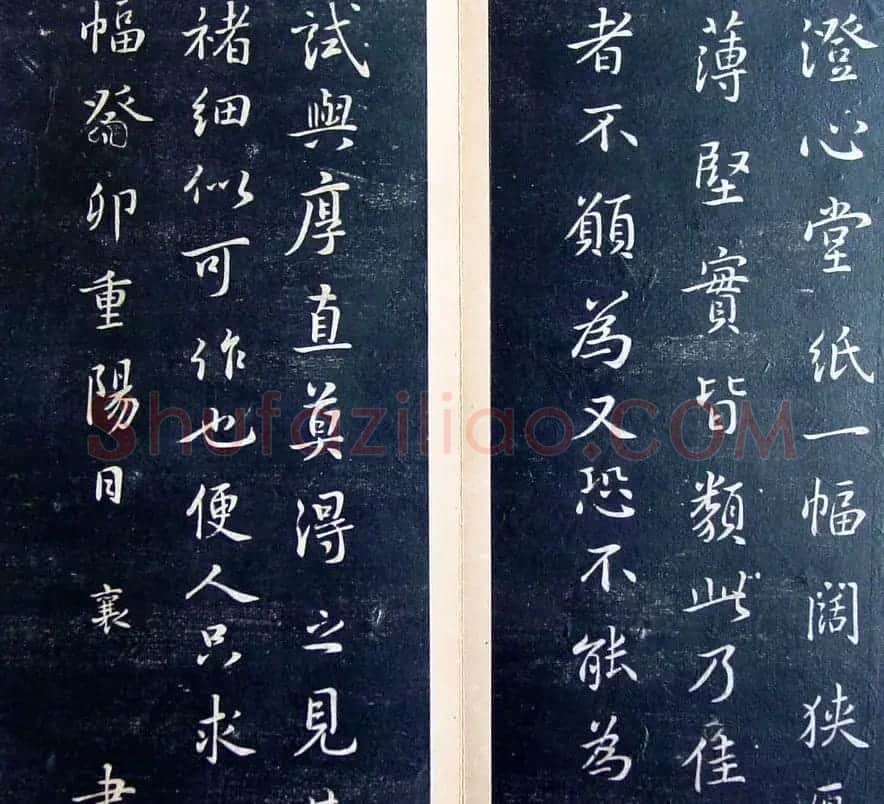 澄心堂紙一幅闊狹厚
薄堅實皆類此乃佳
者不願為又恐不能為
試與厚直莫得之見其
褚細似可作也便人只求
幅癸卯重陽日 襄 書
Shufaziliao.COM